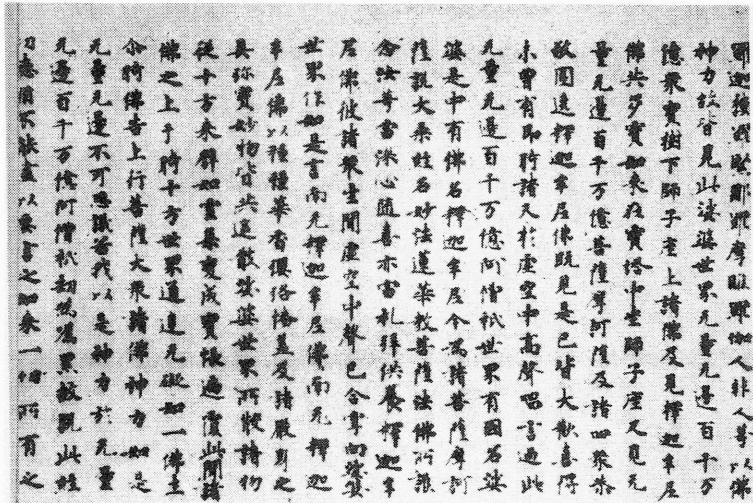 羅緊那羅摩睺羅伽人非人等以佛
神力故皆見此娑婆世界无量无邊百千万
億衆寶樹下師子座上諸佛及見釋迦牟尼
佛共多寶如來在寶塔中坐師子座又見无
量无邊百千万億菩薩摩訶薩及諸四衆恭
敬圍遶釋迦牟尼佛既見是已皆大歡喜得
未曾有即時諸天於虛空中高聲唱言過此
无量无邊百千万億阿僧祇世界有國名娑
婆是中有佛名釋迦牟尼今為諸菩薩摩訶
薩說大乘經名妙法蓮華教菩薩法佛所護
念汝等當深心隨喜亦當礼拜供養釋迦牟
尼佛彼諸衆生聞虛空中聲已合掌向娑婆
世界作如是言南无釋迦牟尼佛南无釋迦
牟尼佛以種種華香瓔珞幡蓋及諸嚴身之
具珎寶妙物皆共遥散娑婆世界所散諸物
從十方來辟如雲集變成寶帳遍覆此間諸
佛之上于時十方世界通達无礙如一佛土
尒時佛告上行菩薩大衆諸佛神力如是
无量无邊不可思議若我以是神力於无量
无邊百千万億阿僧祇劫為囑累故說此經
功德猶不能盡以要言之如來一切所有之